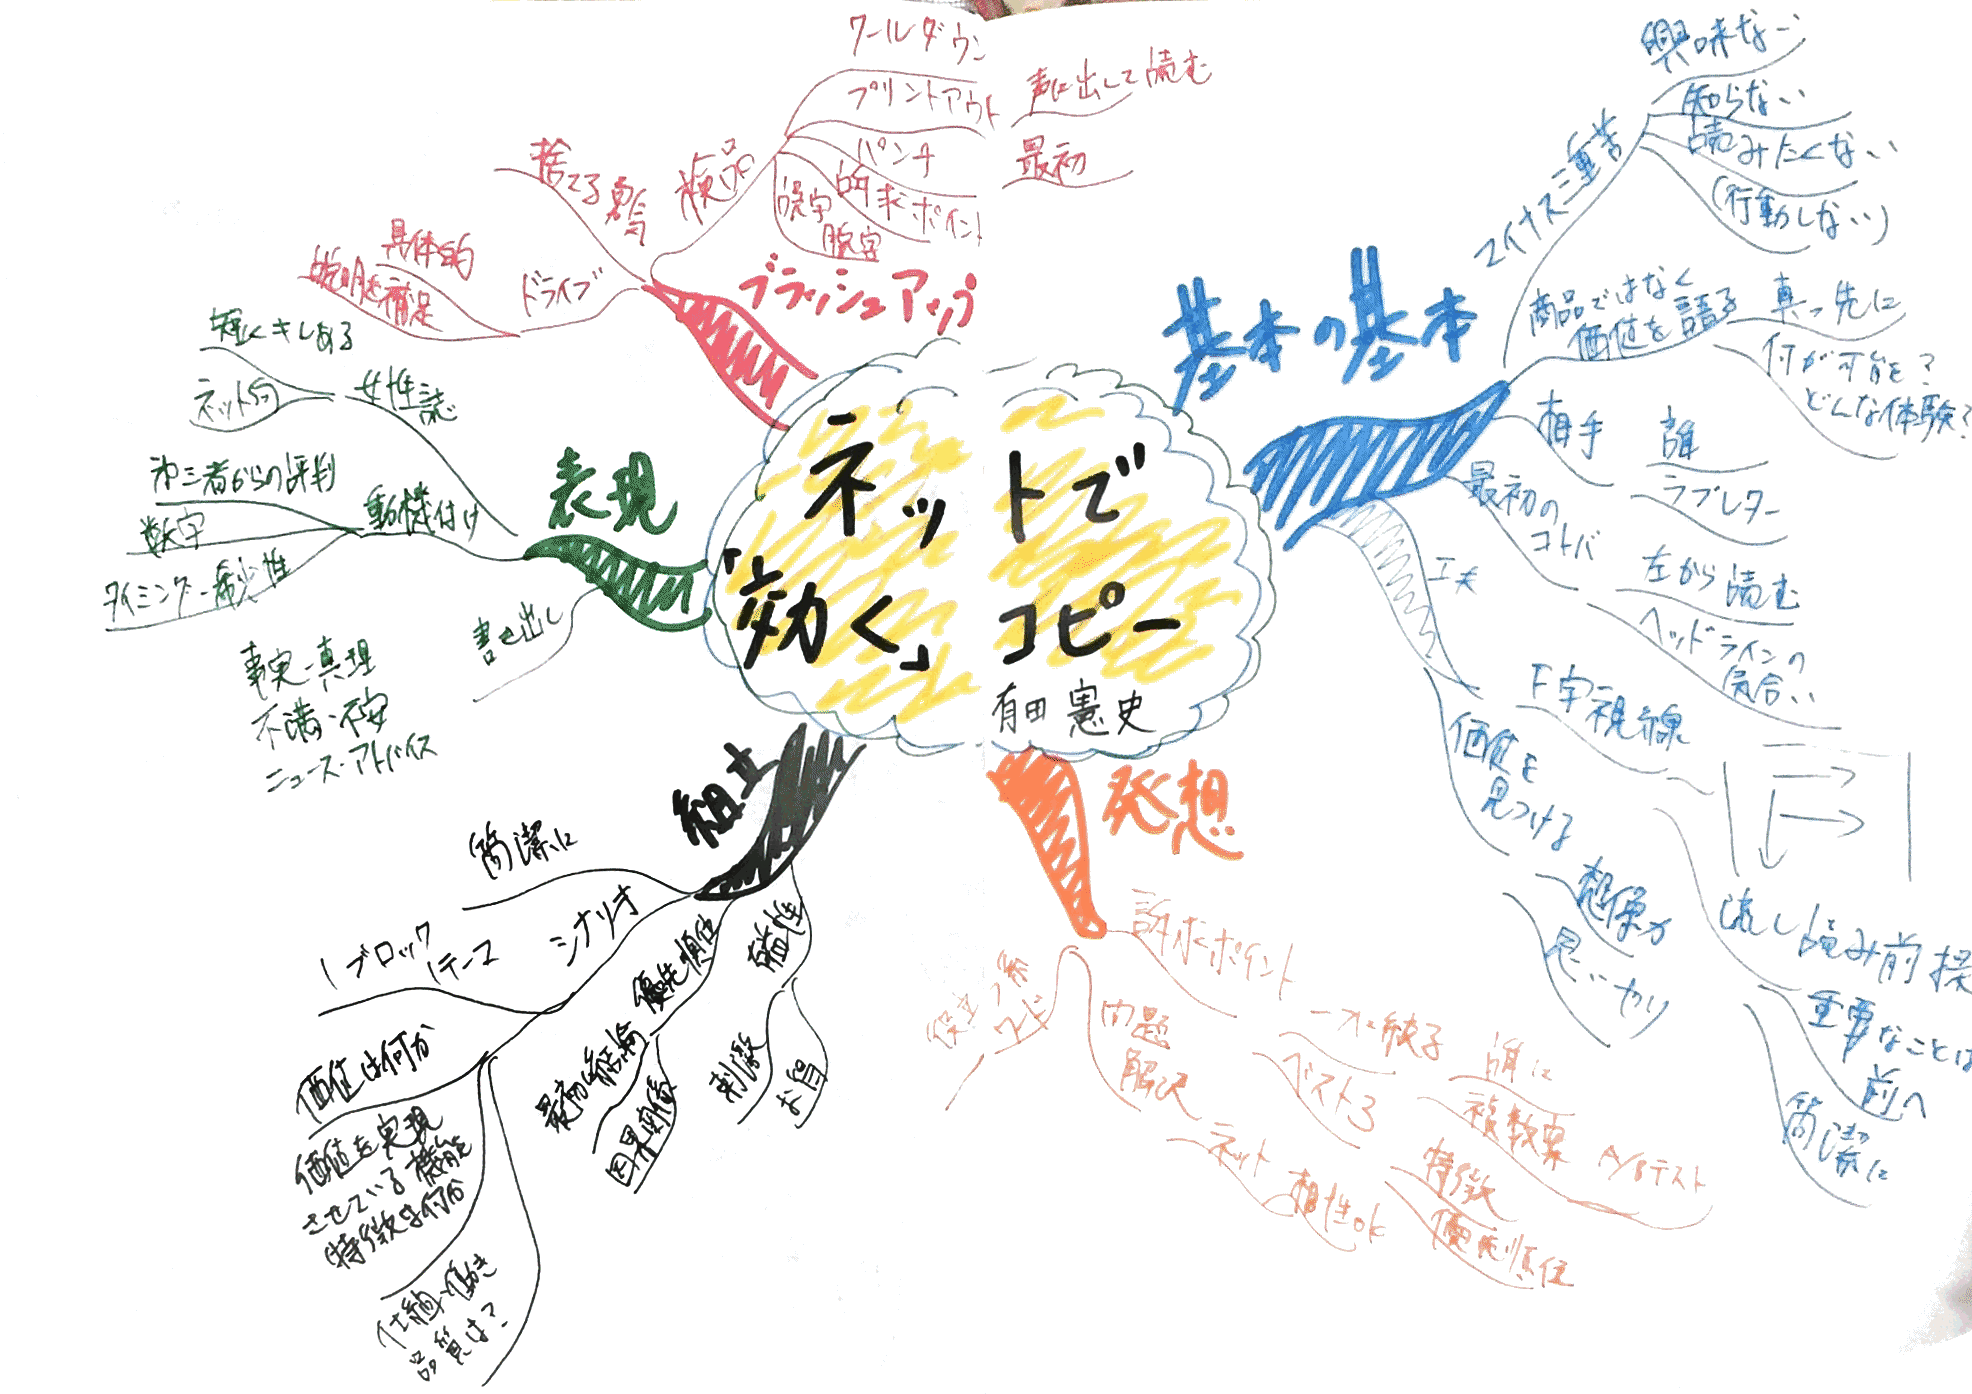 ネットで
「効く」コピー
有田憲史
基本の基本
マイナス三重苦
興味ない
知らない
読みたくない
(行動しない)
商品ではなく
価値を語る
真っ先に
何が可能を?
どんな体験?
相手
誰
ラブレター
最初の
コトバ
左から読む
ヘッドラインの
気合い
工夫
F字視線
流し読み前提
重要なことは
前へ
簡潔に
価値を
見つける
想像力
思いやり
発想
訴求ポイント
一本に絞る
誰に
複数案 A/Bテスト
ベスト3
特徴
優先順位
問題
解決
ネット
相性OK
役立つ系
ワード
組立
簡潔に
シナリオ
1ブロック
1テーマ
価値は何か
価値を実現
させている機能
特徴は何か
仕組・働き
品質は?
優先順位
最初に結論
因果関係
有益性
刺激
お得
表現
女性誌
短くキレある
ネット向
動機付け
第三者からの評判
数字
タイミング・希少性
書き出し
事実・真理
不満・不安
ニュース・アドバイス
ブラッシュアップ
検品
クールダウン
プリントアウト
声に出して読む
パンチ
最初
訴求ポイント
誤字
脱字
捨てる勇気
ドライブ
具体的
説明を補足